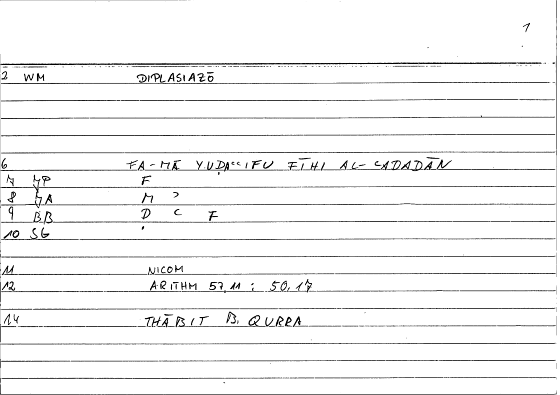 1
2 WM DIPLASIAZŌ
6 FA-MĀ YUḌAᶜᶜIFU FĪHI AL-ᶜADADĀN
7 JP F
8 JA M ʾ
9 BB D ᶜ F
10 SG
11 NICOM
12 ARITHM 57,11 ; 50,17
14 THĀBIT B. QURRA